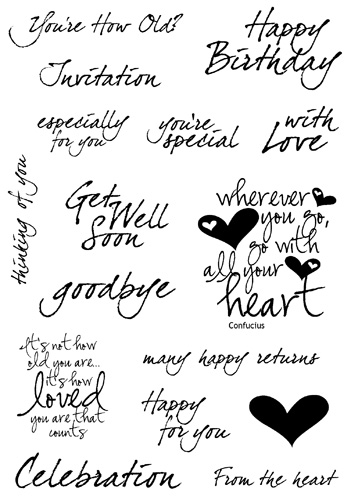 You're How Old?
Happy
Birthday
Invitation
especially
for you
you're
special
with
Love
thinking of you
Get
Well
Soon
wherever
you go,
go with
all your
heart
Confucius
goodbye
It's not how
old you are...
it's how
loved
you are that
counts
many happy returns
Happy
for you
Celebration
From the heart